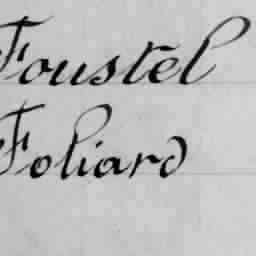 Foustel
Foliard